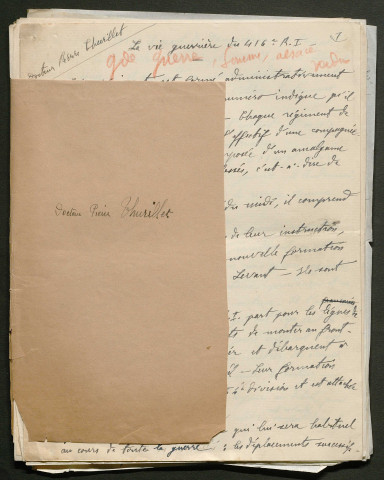 Docteur Pierre Thurillet
La vie guerrière du 416e R.I.
1
gde guerre, Somme, alsace
Verdun
est formé administrativement
numéro indique qu'il
Chaque régiment de
l'effectif d'une compagnie
composée d'un amalgame
c'est-à-dire de
du midi, il comprend
de leur instruction,
nouvelle formation
Levant - Ils sont
françaises
R.I. part pour les lignes de
de monter au front
et débarquent à
Leur formation
division et est attachée
qui lui sera habituel
au cours de toute la guerre : les déplacements successifs
Docteur Pierre Thurillet